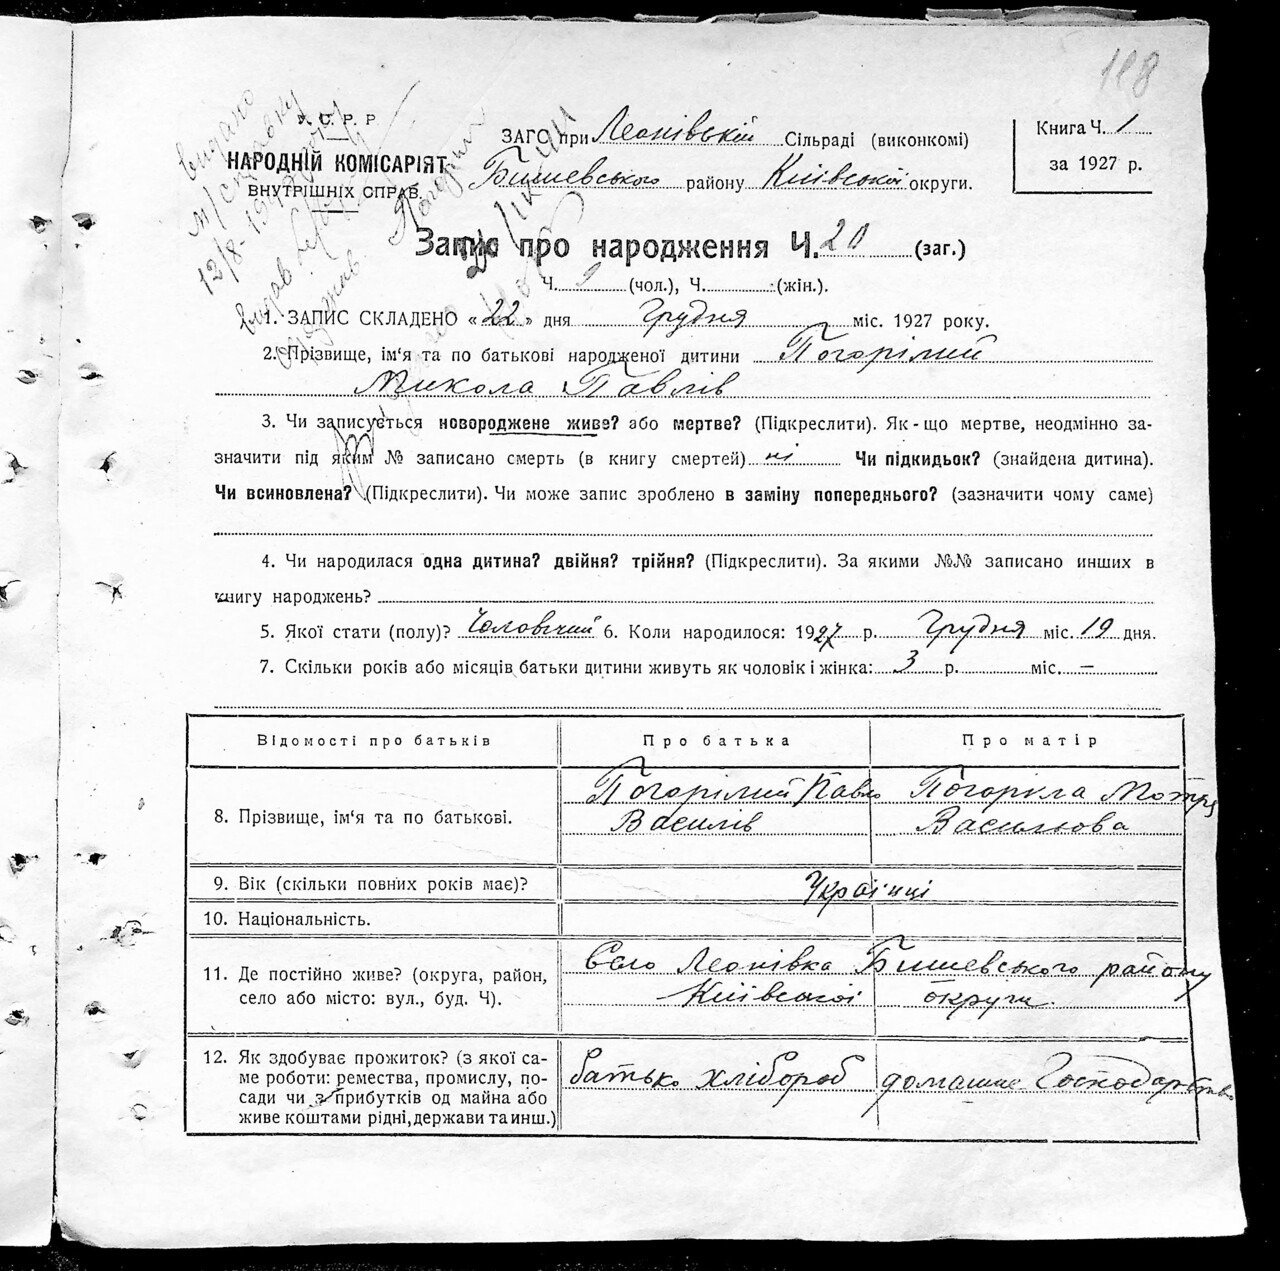 118
У. С. Р. Р
НАРОДНІЙ КОМІСАРІЯТ
ВНУТРІШНІХ СПРАВ.
ЗАГС при Леонівській Сільраді (виконкомі)
Бишевського району Київської округи.
Книга Ч. 1
за 1927 р.
видано
12/8-194
Запис про народження Ч. 20 (заг.)
Ч. 9 (чол.), Ч. (жін.).
1. ЗАПИС СКЛАДЕНО «22» дня Грудня міс. 1927 року.
2. Прізвище, ім'я та по батькові народженої дитини Погорілий
Микола Павлів
3. Чи записується новороджене живе? або мертве? (Підкреслити). Як-що мертве, неодмінно за-
значити під яким № записано смерть (в книгу смертей) ні Чи підкидьок? (знайдена дитина).
Чи всиновлена? (Підкреслити). Чи може запис зроблено в заміну попереднього? (зазначити чому саме)
4. Чи народилася одна дитина? двійня? трійня? (Підкреслити). За якими №№ записано инших в
книгу народжень?
5. Якої стати (полу)? Чоловічий 6. Коли народилося: 1927 р. Грудня міс. 19 дня.
7. Скільки років або місяців батьки дитини живуть як чоловік і жінка: 3 р. міс. –
Відомості про батьків Про батька Про матір
8. Прізвище, ім'я та по батькові. Погорілий Павло Василів Погоріла Мотря Васильова
9. Вік (скільки повних років має)?
Українці
10. Національність.
11. Де постійно живе? (округа, район, Село Леонівка Бишевського району
село або місто: вул., буд. Ч). Київської округи.
12. Як здобуває прожиток? (з якої са- батько хлібороб домашнє Господарство
ме роботи: ремества, промислу, по-
сади чи з прибутків од майна або
живе коштами рідні, держави та инш.)